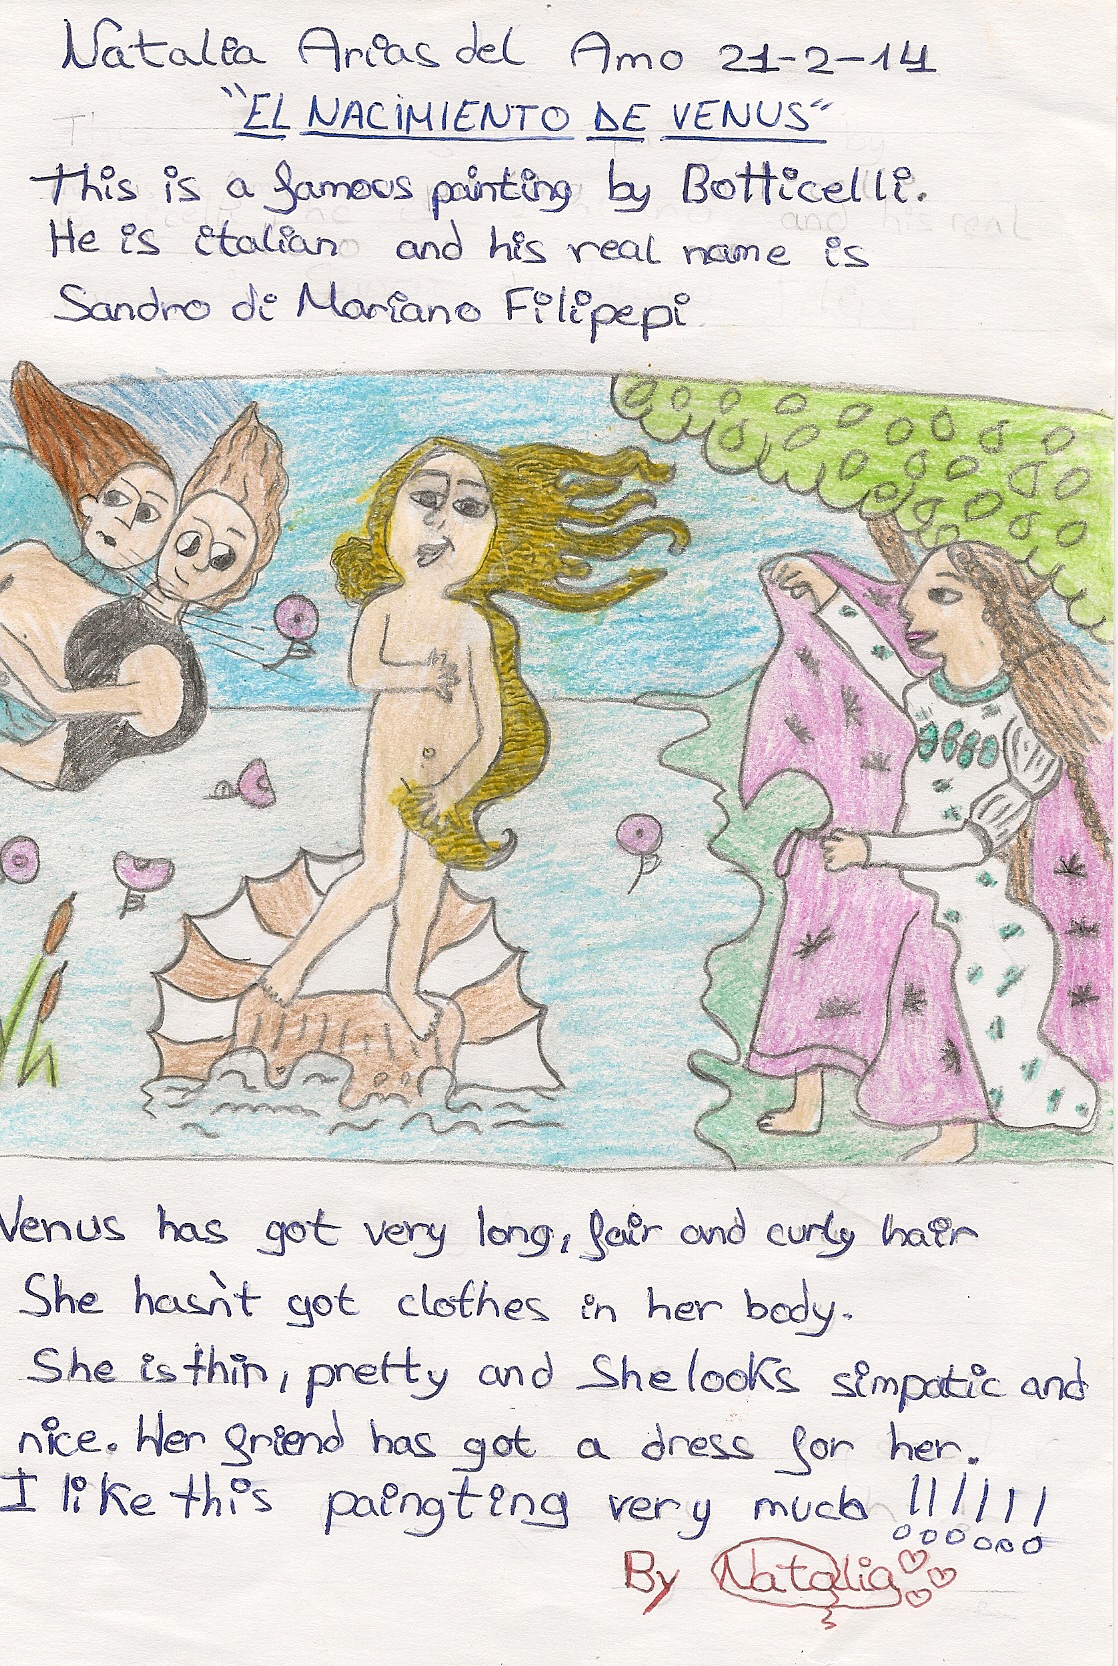 Natalia Arias del Amo 21-2-14
"EL NACIMIENTO DE VENUS"
This is a famous painting by Botticelli.
He is italian and his real name is
Sandro di Mariano Filipepi
Venus has got very long, fair and curly hair
She hasn't got clothes in her body.
She is thin, pretty and She looks simpatic and
nice. Her friend has got a dress for her.
I like this paingting very much !!!!!!
By Natalia